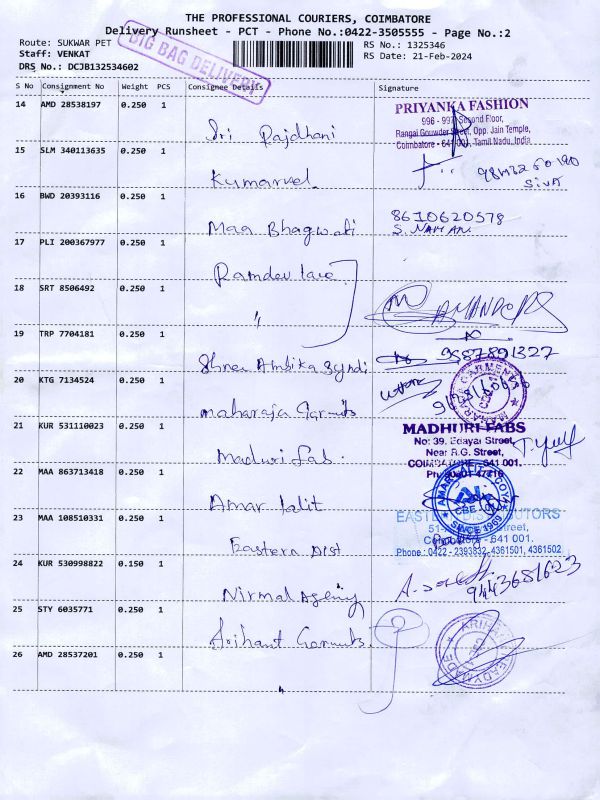 THE PROFESSIONAL COURIERS, COIMBATORE
Delivery Runsheet - PCT - Phone No.:0422-3505555 - Page No.:2
Route: SUKWAR PET
RS No.: 1325346
Staff: VENKAT
RS Date: 21-Feb-2024
DRS No.: DCJB132534602
BIG BAG DELIVERY
S No Consignment No Weight PCS Consignee Details Signature
14 AMD 28538197 0.250 1
Sri Rajdhani
PRIYANKA FASHION
996 - 997, Second Floor,
Rangai Gouwder Street, Opp. Jain Temple,
Coimbatore - 641 001, Tamil Nadu, India.
15 SLM 340113635 0.250 1
Kumarvel
Siva
16 BWD 20393116 0.250 1
Maa Bhagwati
8610620579
17 PLI 200367977 0.250 1
Ramdev lace
18 SRT 8506492 0.250 1
"
19 TRP 7704181 0.250 1
Shree Ambika Syndi
20 KTG 7134524 0.250 1
maharaja Garmnts
21 KUR 531110023 0.250 1
Maduri Fab.
MADHURI FABS
No: 39, Edayar Street,
Near R.G. Street,
COIMBATORE - 641 001.
22 MAA 863713418 0.250 1
Amar lalit
SINCE 1969
23 MAA 108510331 0.250 1
Eastern Dist
EASTERN DISTRIBUTORS
Street,
641 001.
Phone : 0422 - 2393832, 4361501, 4361502
24 KUR 530998822 0.150 1
Nirmal Agency
9443681603
25 STY 6035771 0.250 1
Arihant Garmnts.
26 AMD 28537201 0.250 1
"